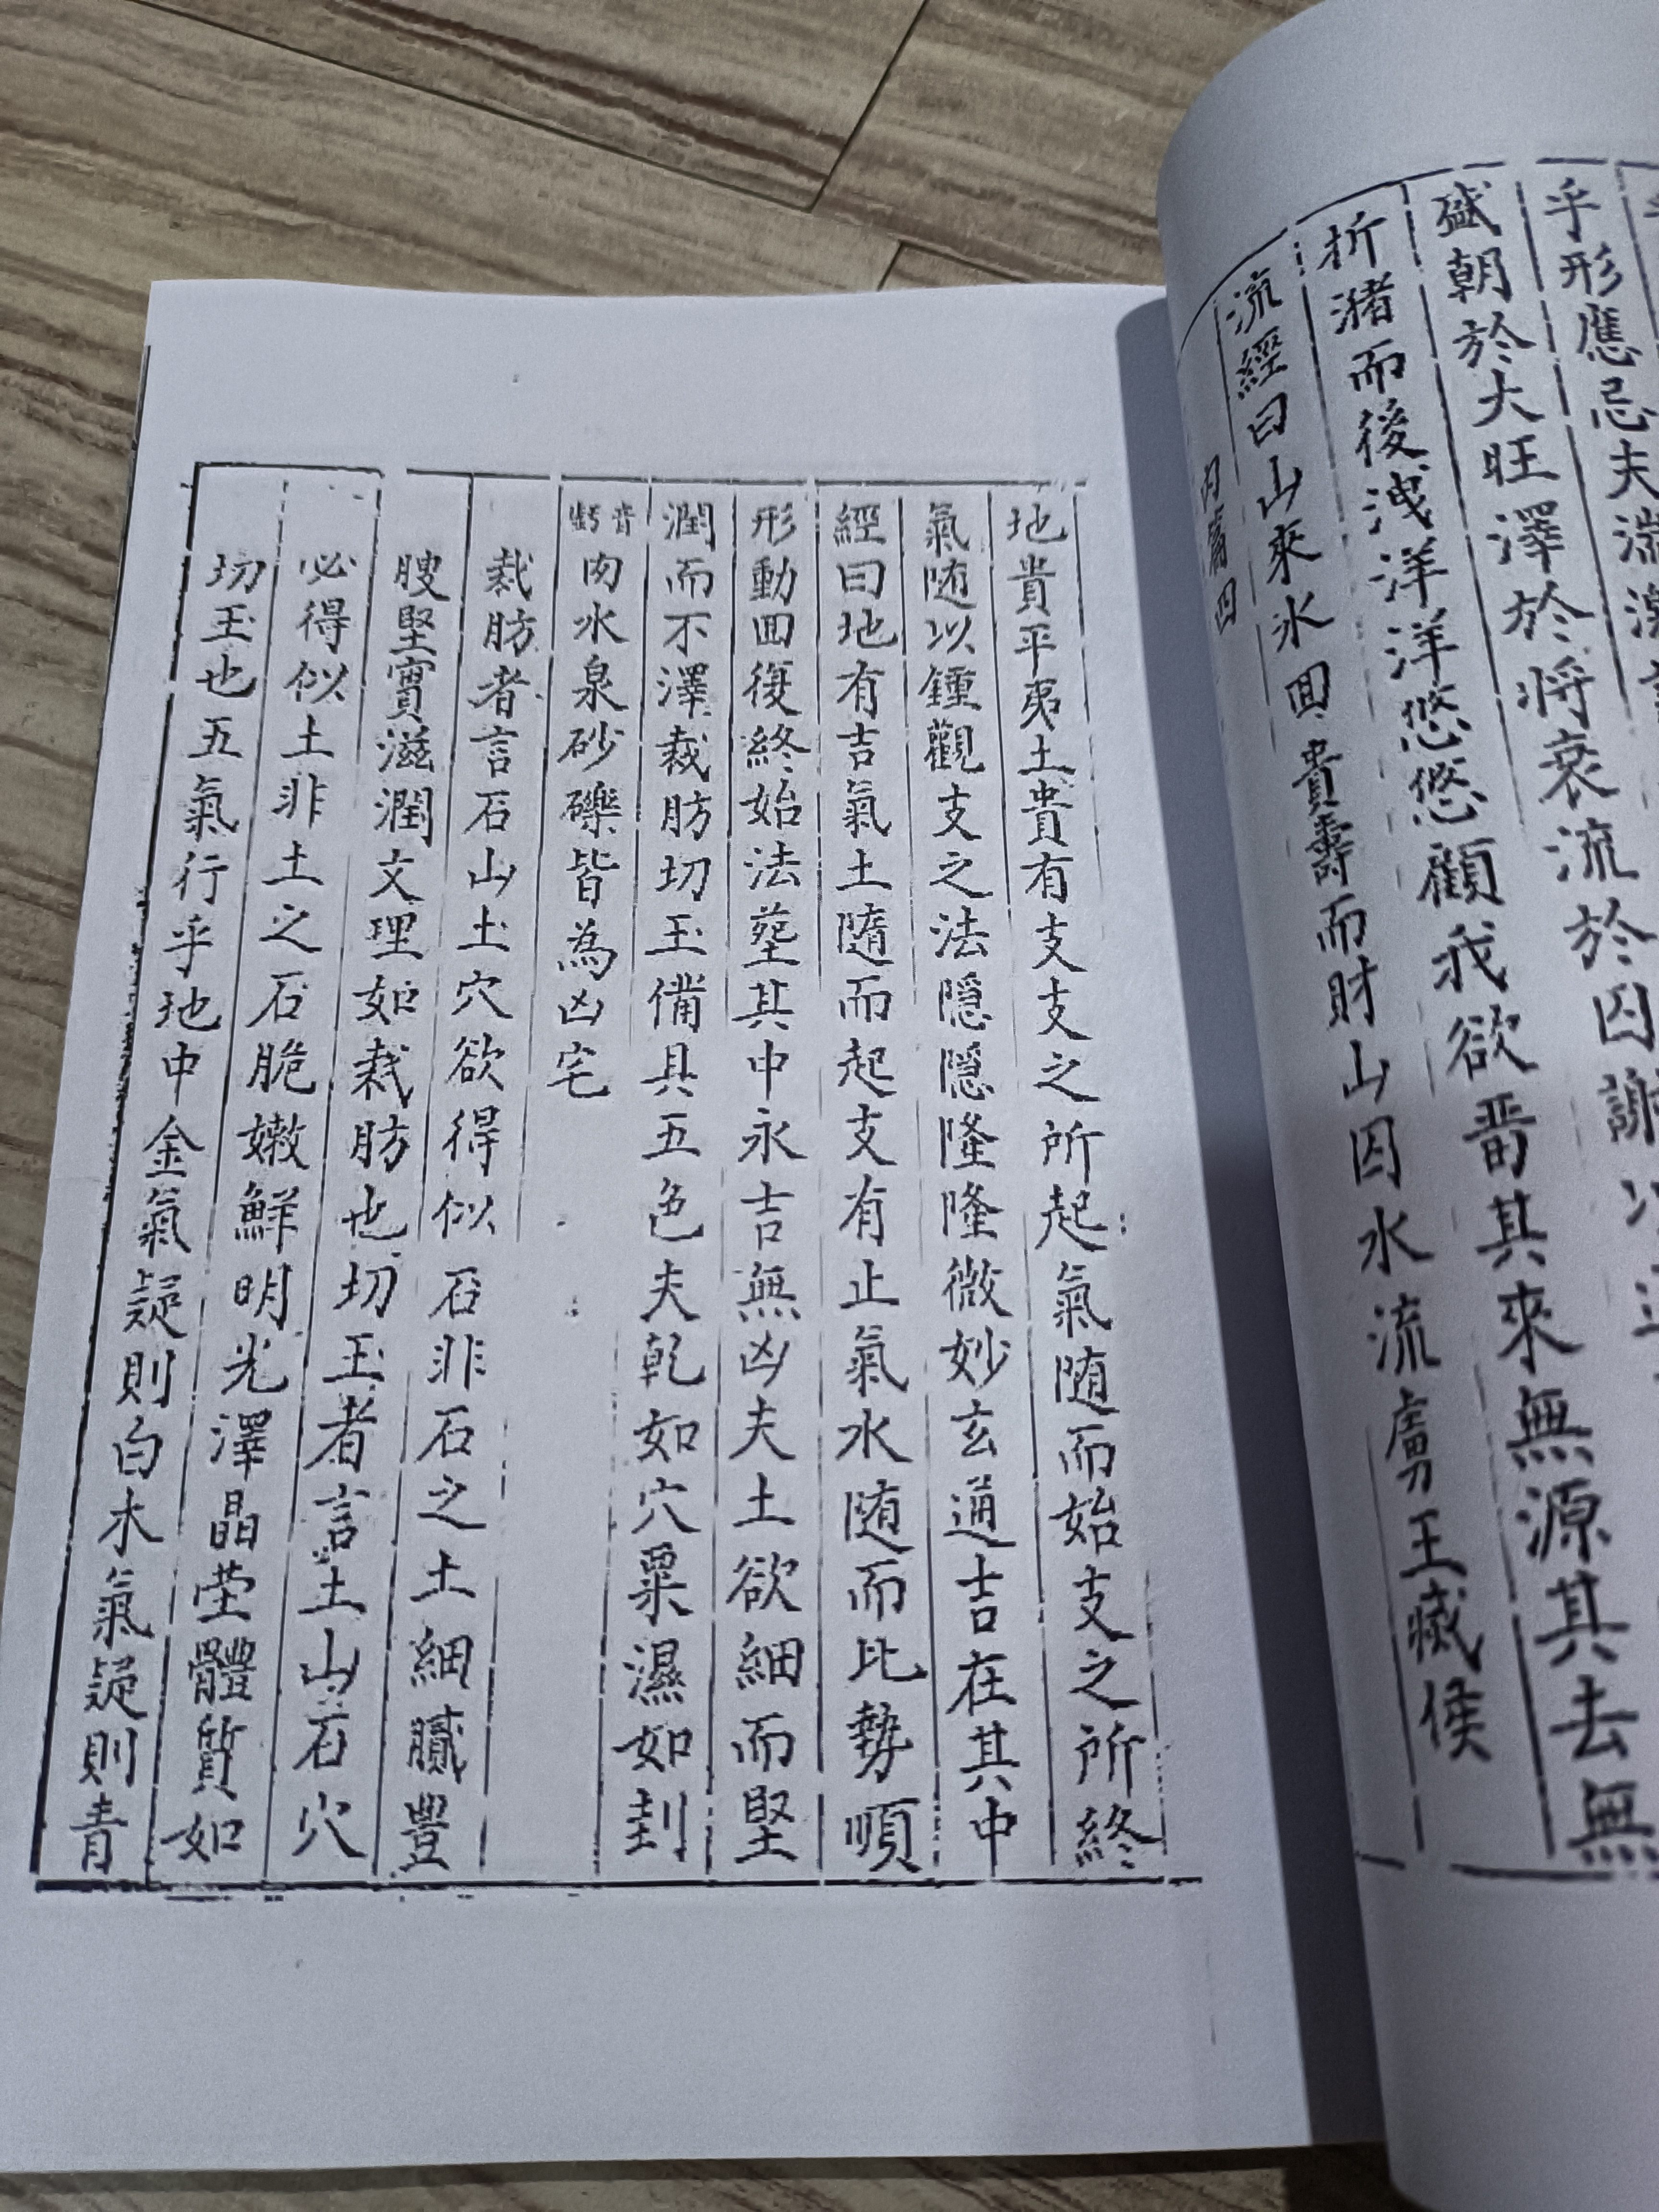 乎形應忌夫
盛朝於大旺澤於將衰流於囚謝以
折瀦而後洩洋洋悠悠顧我欲畱其來無源其去無
流經曰山來水囬貴壽而財山囚水流虜王滅侯
内篇四
地貴平夷土貴有支支之所起氣随而始支之所終
氣随以鍾觀支之法隠隠隆隆微妙玄通吉在其中
經曰地有吉氣土隨而起支有止氣水随而比勢順
形動囬復終始法塟其中永吉無凶夫土欲細而堅
潤而不澤裁肪切玉備具五色夫乾如穴粟濕如刲
音
肉水泉砂礫皆為凶宅
裁肪者言石山土穴欲得似石非石之土細膩豐
腴堅實滋潤文理如裁肪也切玉者言土山石穴
必得似土非土之石脆嫩鮮明光澤晶瑩體質如
切玉也五氣行乎地中金氣凝則白木氣凝則青